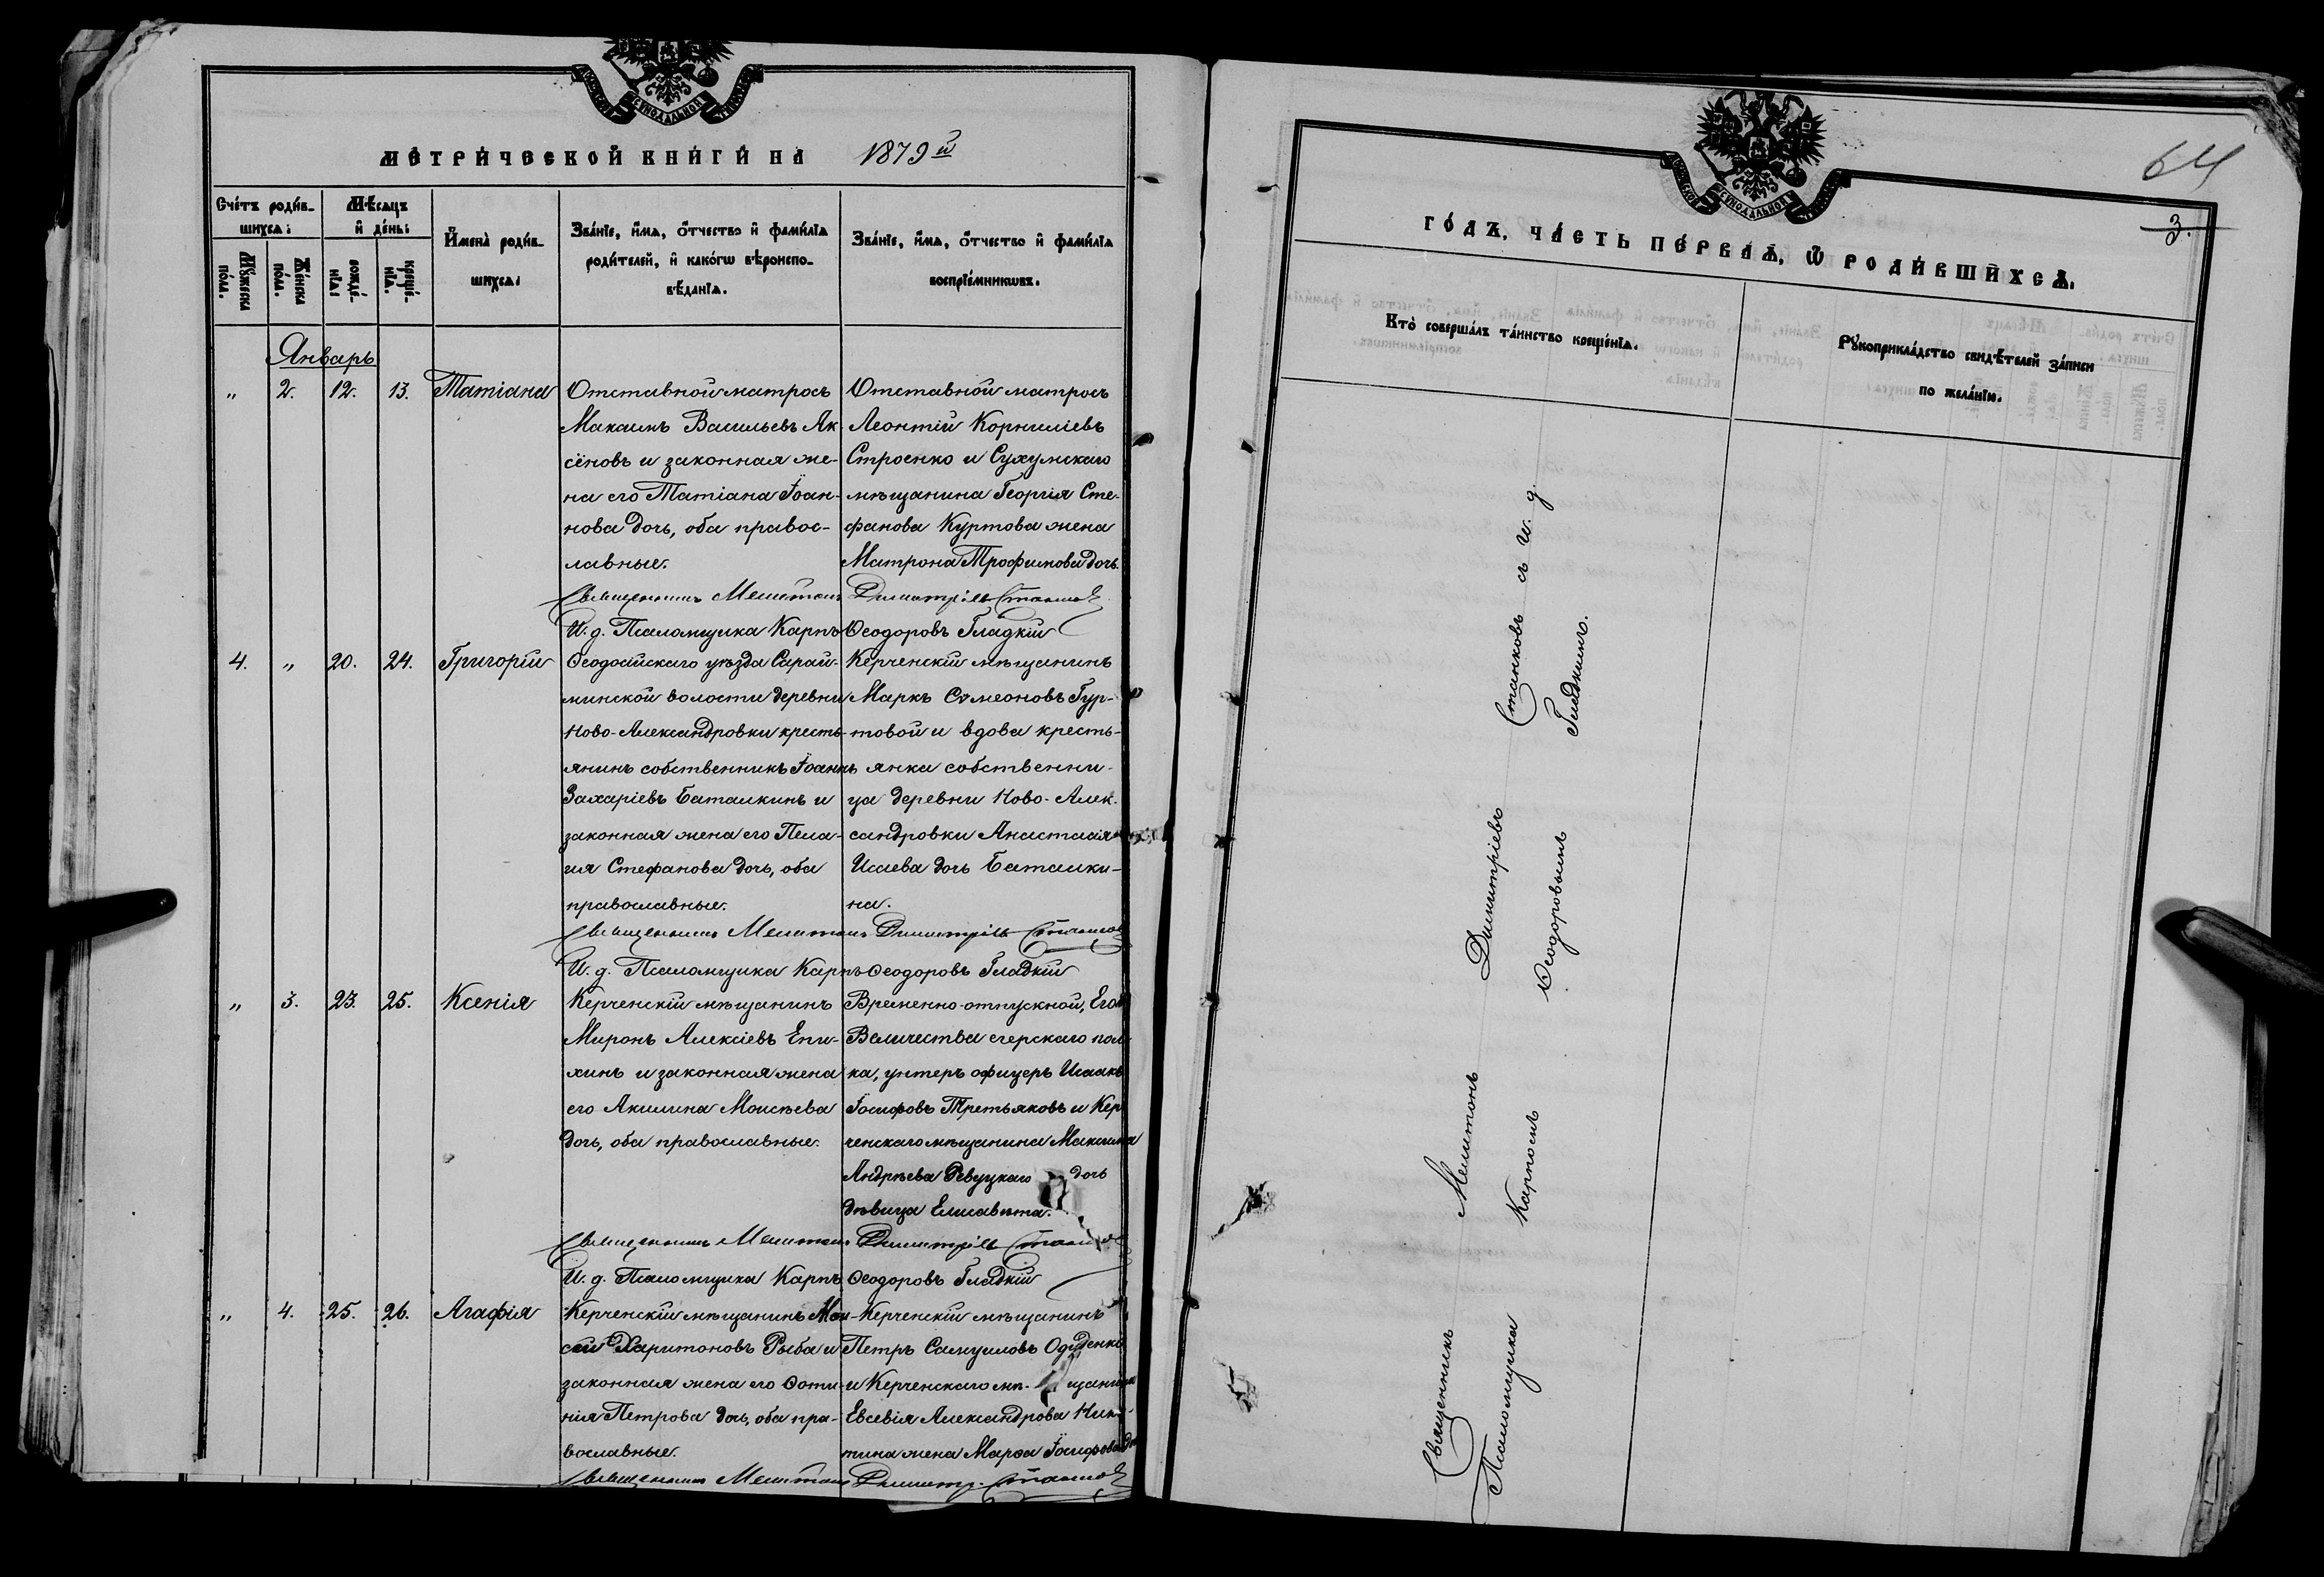 СѴНОДАЛЬНОЙ
МЕТРИЧЕСКОЙ КНИГИ НА 1879й
Счетъ родив-
шихся:
Мѣсяцъ
и день:
Мужеска
пола.
Женска
пола.
рожде-
нія:
креще-
нія.
Имена родив-
шихся:
Званіе, имя, отчество и фамилія
родителей, и какогѡ вѣроиспо-
вѣданія.
Званіе, имя, отчество и фамилія
воспріемникѡвъ.
Январь
„ 2. 12. 13. Татіана
Отставной матросъ
Макаимъ Васильевъ Ак-
сёновъ и законная же-
на его Татіана Іоан-
нова дочь, оба правос-
лавные.
Отставной матросъ
Леонтій Корниліевъ
Строенко и Сухумскаго
мѣщанина Георгія Сте-
фанова Куртова жена
Матрона Трофимова дочь.
Священникъ Мелитонъ Димитріевъ Станковъ
И. д. Псаломщика Карпъ Ѳеодоровъ Гладкій
4. „ 20. 24. Григорій
Ѳеодосійскаго уѣзда Сарай-
минской волости деревни
Ново-Александровки кресть-
янинъ собственникъ Іоаннъ
Захаріевъ Баталкинъ и
законная жена его Пела-
гія Стефанова дочь, оба
православные.
Керченскій мѣщанинъ
Маркъ Сѵмеоновъ Гур-
товой и вдова кресть-
янка собственни-
ца деревни Ново-Алек-
сандровки Анастасія
Исаева дочь Баталки-
на.
Священникъ Мелитонъ Димитріевъ Станковъ
И. д. Псаломщика Карпъ Ѳеодоровъ Гладкій
„ 3. 23. 25. Ксенія
Керченскій мѣщанинъ
Миронъ Алексіевъ Епи-
хинъ и законная жена
его Акилина Моисѣева
дочь, оба православные.
Временно-отпускной, Его
Величества егерскаго пол-
ка, унтеръ офицеръ Исаакъ
Іосифовъ Третьяковъ и Кер-
ченскаго мѣщанина Максима
Андрѣева Ревуцкаго дочь
дѣвица Елисавета.
Священникъ Мелитонъ Димитріевъ Станковъ
И. д. Псаломщика Карпъ Ѳеодоровъ Гладкій
„ 4. 25. 26. Агафія
Керченскій мѣщанинъ Мои-
сей Харитоновъ Рыба и
законная жена его Фоти-
нія Петрова дочь, оба пра-
вославные.
Керченскій мѣщанинъ
Петръ Самуиловъ Одуденко
и Керченскаго мѣ- щанина
Евсевія Александрова Ники-
тина жена Марѳа Іосифова дочь
Священникъ Мелитонъ Димитр. Станковъ
СѴНОДАЛЬНОЙ
64
3.
ГОДЪ, ЧАСТЬ ПЕРВАЯ, Ѿ РОДИВШИХСЯ.
Кто совершалъ таинство крещенія.
Рукоприкладство свидѣтелей записи
по желанію.
Священникъ Мелитонъ Димитріевъ Станковъ съ и. д.
Псаломщика Карпомъ Ѳеодоровымъ Гладкимъ.